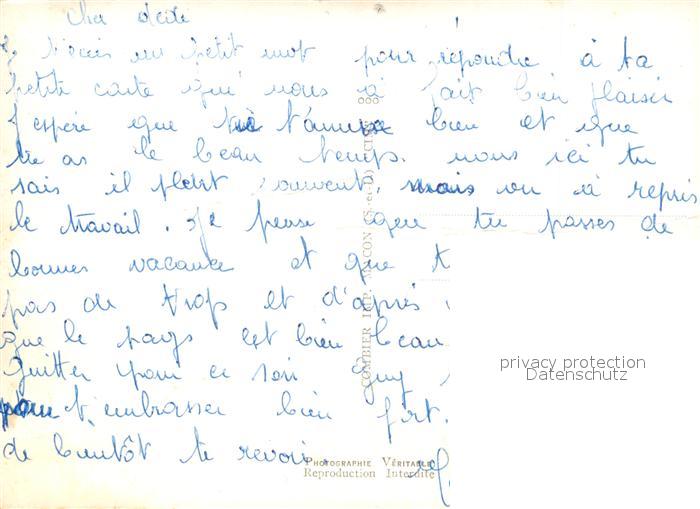 Cher dédé
J'écris un petit mot pour répondre à ta
petite carte qui nous à fait bien plaisir
J'espère que tu t'amuse bien et que
tu as le beau temps. nous ici tu
sais il pleut souvent, mais on à repris
le travail. Je pense que tu passes de
bonnes vacance et que t
pas de trop et d'après
que le pays est bien beau
quitter pour ce soir Guy
pour t'embrasser bien fort.
de bientôt te revoir.
COMBIER IMP. MACON (S.-et-L.) CIM
PHOTOGRAPHIE VÉRITABLE
Reproduction Interdite
privacy protection
Datenschutz